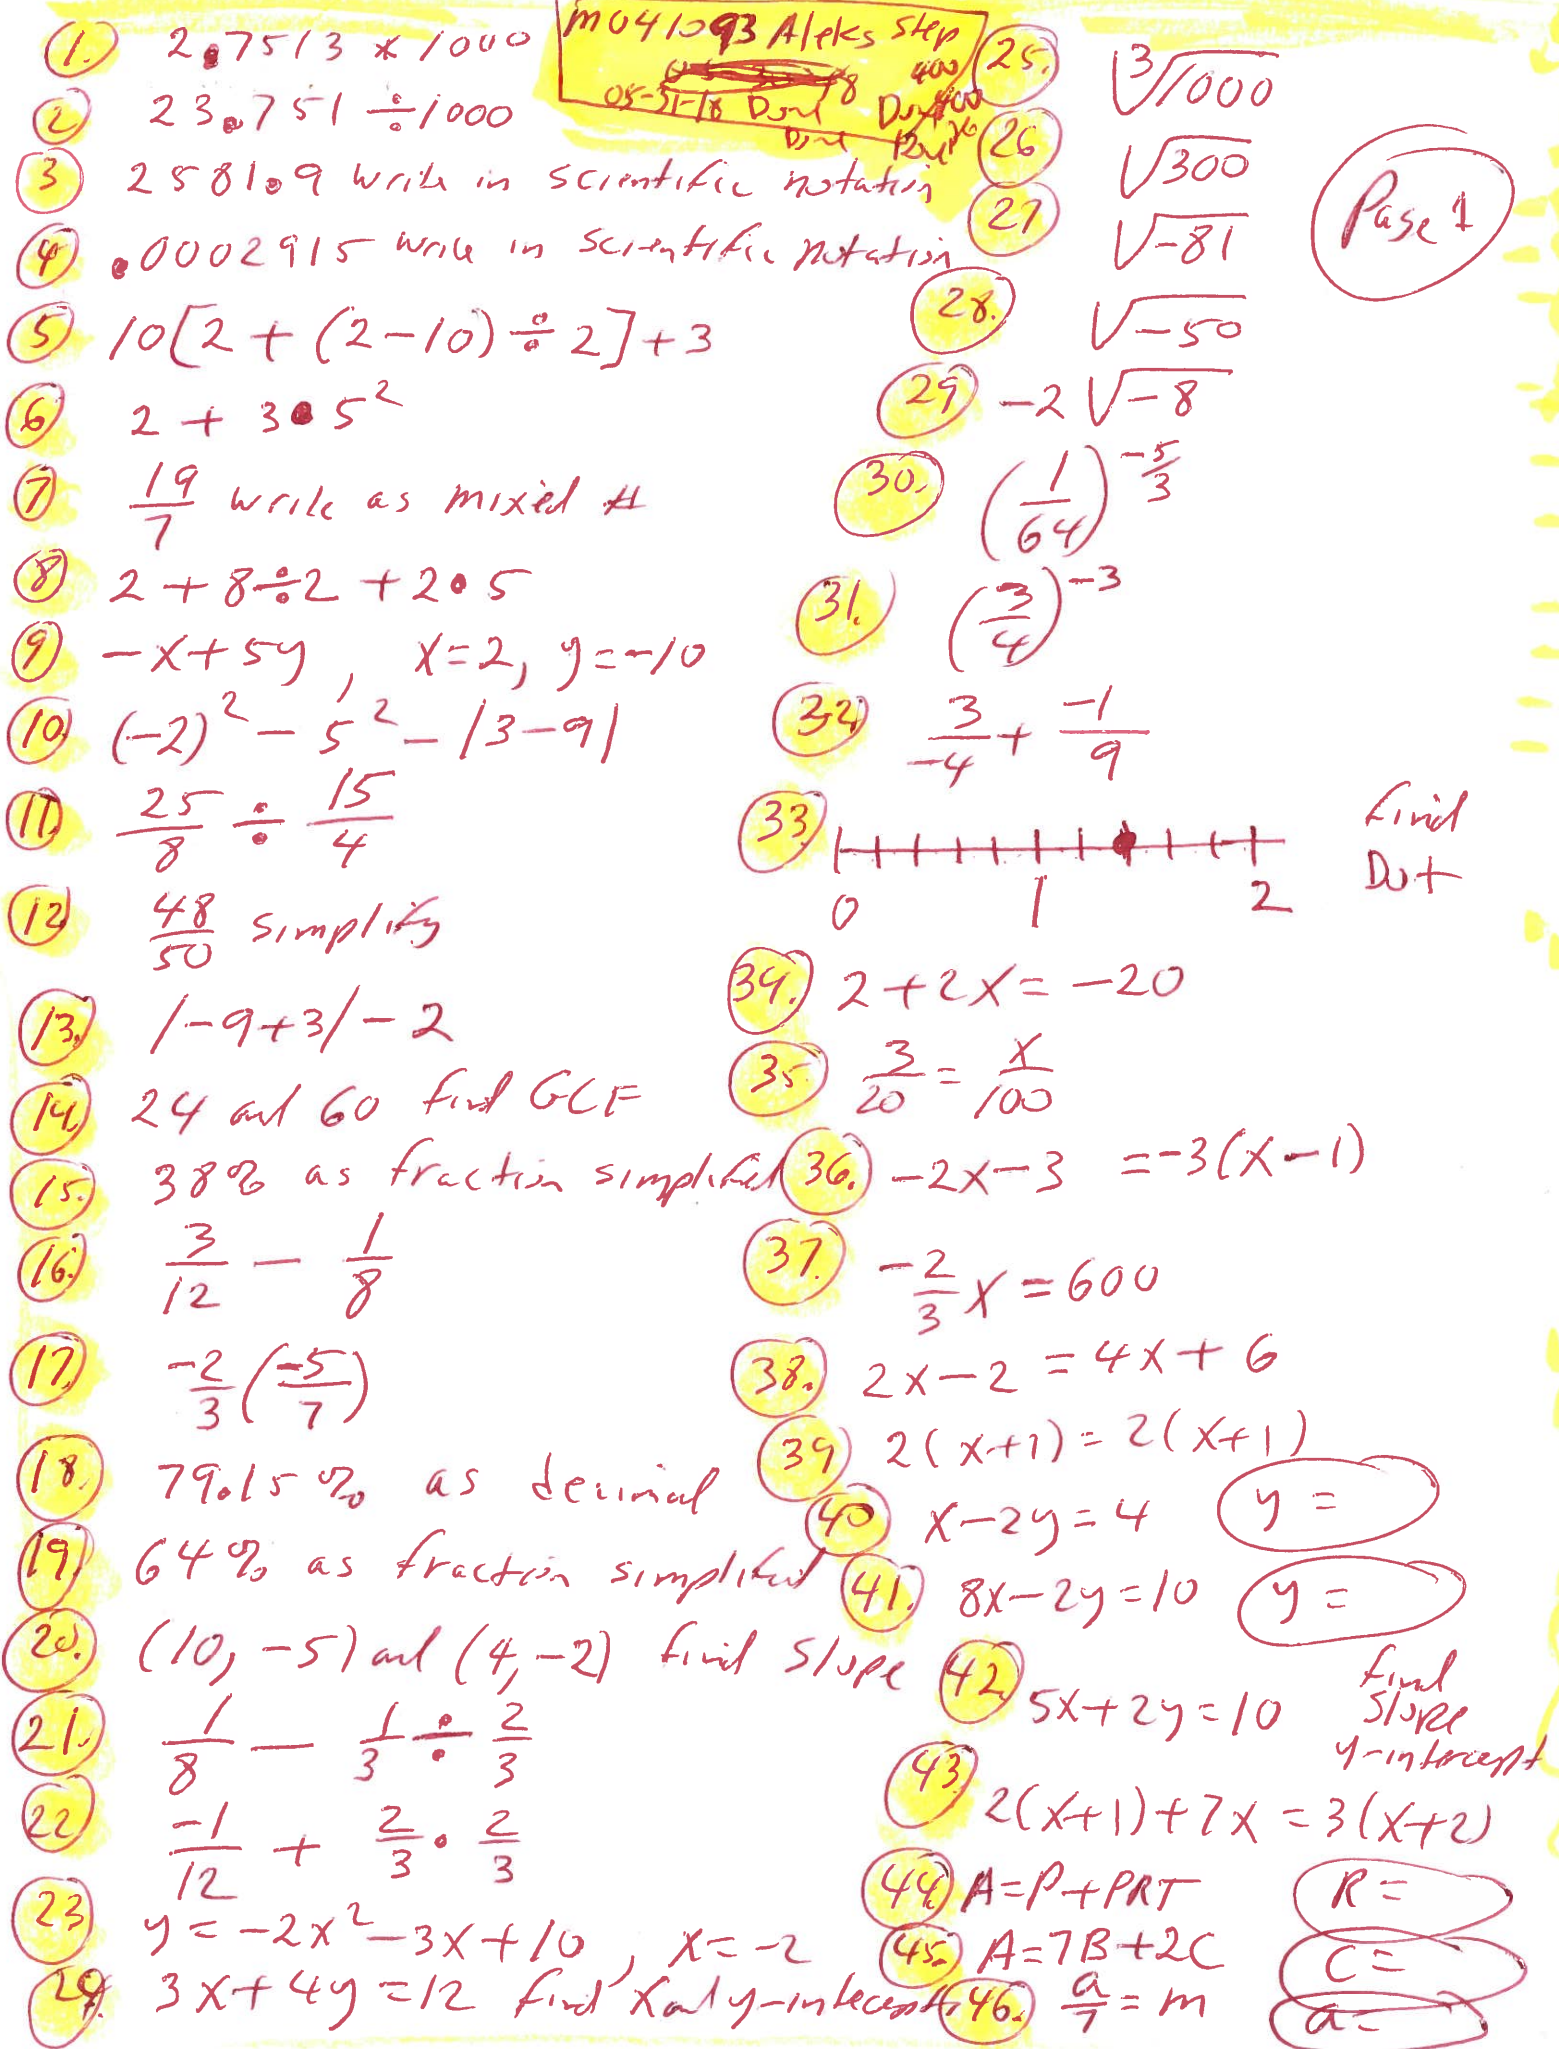 M041093 Aleks Step
400
05-31-18 Done
Done
1. 2.7513 * 1000
2 23.751 ÷ 1000
3 2581.9 write in scientific notation
4 .0002915 write in scientific notation
5 10[2 + (2-10) ÷ 2] + 3
6 2 + 3 • 5²
7 19/7 write as mixed #
8 2 + 8 ÷ 2 + 2 • 5
9 -x + 5y, x = 2, y = -10
10. (-2)² - 5² - |3-9|
11. 25/8 ÷ 15/4
12 48/50 simplify
13. |-9+3| - 2
14. 24 and 60 find GCF
15. 38% as fraction simplified
16. 3/12 - 1/8
17. -2/3 (-5/7)
18. 79.15% as decimal
19. 64% as fraction simplified
20. (10, -5) and (4, -2) find slope
21. 1/8 - 1/3 ÷ 2/3
22 -1/12 + 2/3 • 2/3
23 y = -2x² - 3x + 10, x = -2
24. 3x + 4y = 12 find x and y-intecepts
25. ³√1000
26 √300
27 √-81
Page 1
28. √-50
29 -2√-8
30. (1/64)^(-5/3)
31. (3/4)^(-3)
32 3/-4 + -1/9
33. 0 1 2 find Dot
34. 2 + 2x = -20
35 3/20 = x/100
36. -2x - 3 = -3(x - 1)
37. -2/3 x = 600
38. 2x - 2 = 4x + 6
39 2(x+1) = 2(x+1)
40 x - 2y = 4 y =
41. 8x - 2y = 10 y =
42 5x + 2y = 10 find slope y-intercept
43. 2(x+1) + 7x = 3(x+2)
44. A = P + PRT R =
45. A = 7B + 2C C =
46. a/7 = m a =